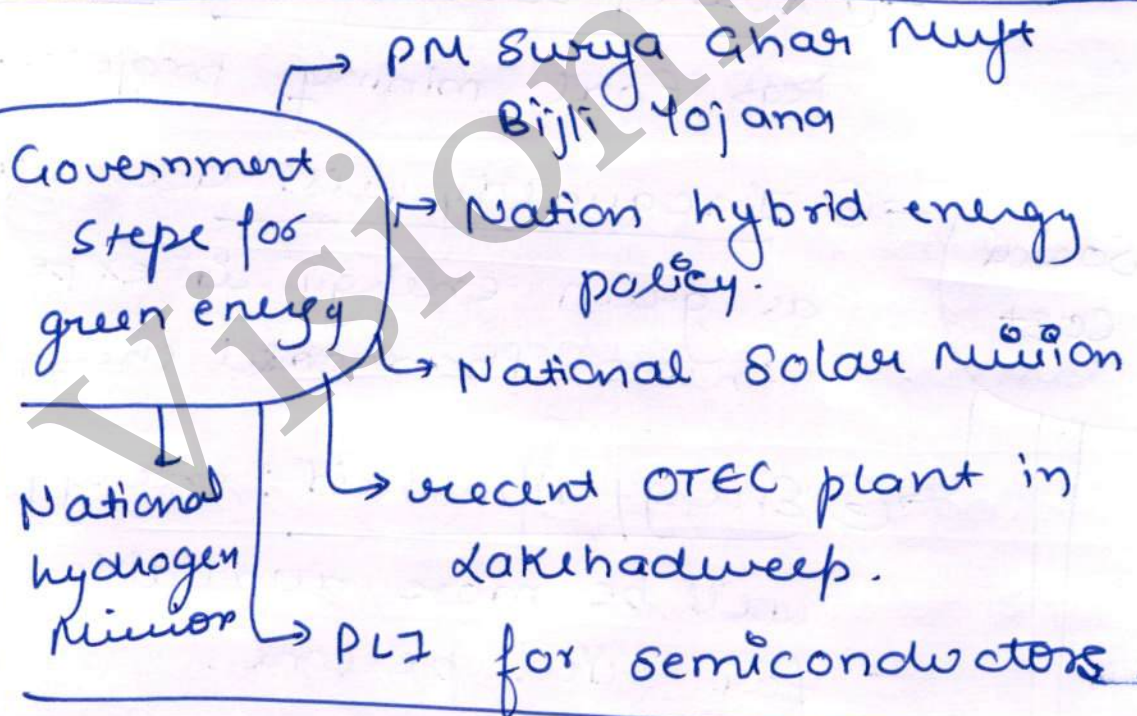 Government
steps for
green energy
→ PM Surya Ghar Muft
Bijli Yojana
→ Nation hybrid energy
policy.
→ National Solar Mission
→ recent OTEC plant in
Lakshadweep.
→ PLI for semiconductors
National
hydrogen
Mission
Vision